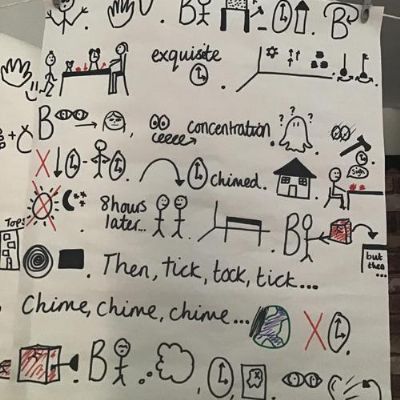 B B
exquisite
B eeee concentration ? ? ?
X chimed. Sigh
Top! 8 hours later... B but then...
Then, tick, tock, tick...
Chime, chime, chime... X
B